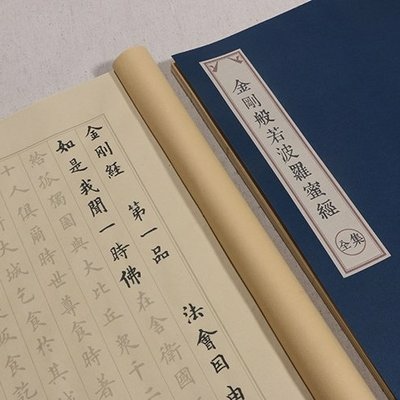 金剛般若波羅蜜經
全集
金剛經 第一品 法會因由
如是我聞一時佛在舍衛國
給孤獨園與大比丘眾千二
十人俱爾時世尊食時著
大城乞食於其城
飯食訖